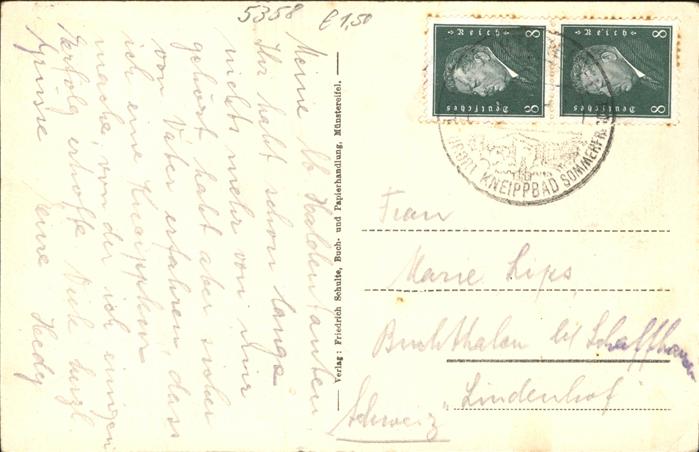 5358 € 1,50
Meine lb Haldentanten.
Ihr habt schon lange
nichts mehr von mir
gehört habt aber sicher
von Vater erfahren dass
ich eine Kneippkur
mache, von der ich einigen
Erfolg erhoffe. Euch herzl.
Grüsse Eure Hedy
Verlag: Friedrich Schulte, Buch- und Papierhandlung, Münstereifel.
8 8
Deutsches Reich
8 8
Deutsches Reich
KNEIPPBAD SOMMERFR.
Frau
Marie Lips
Buchthalen bei Schaffhausen
"Lindenhof"
Schweiz